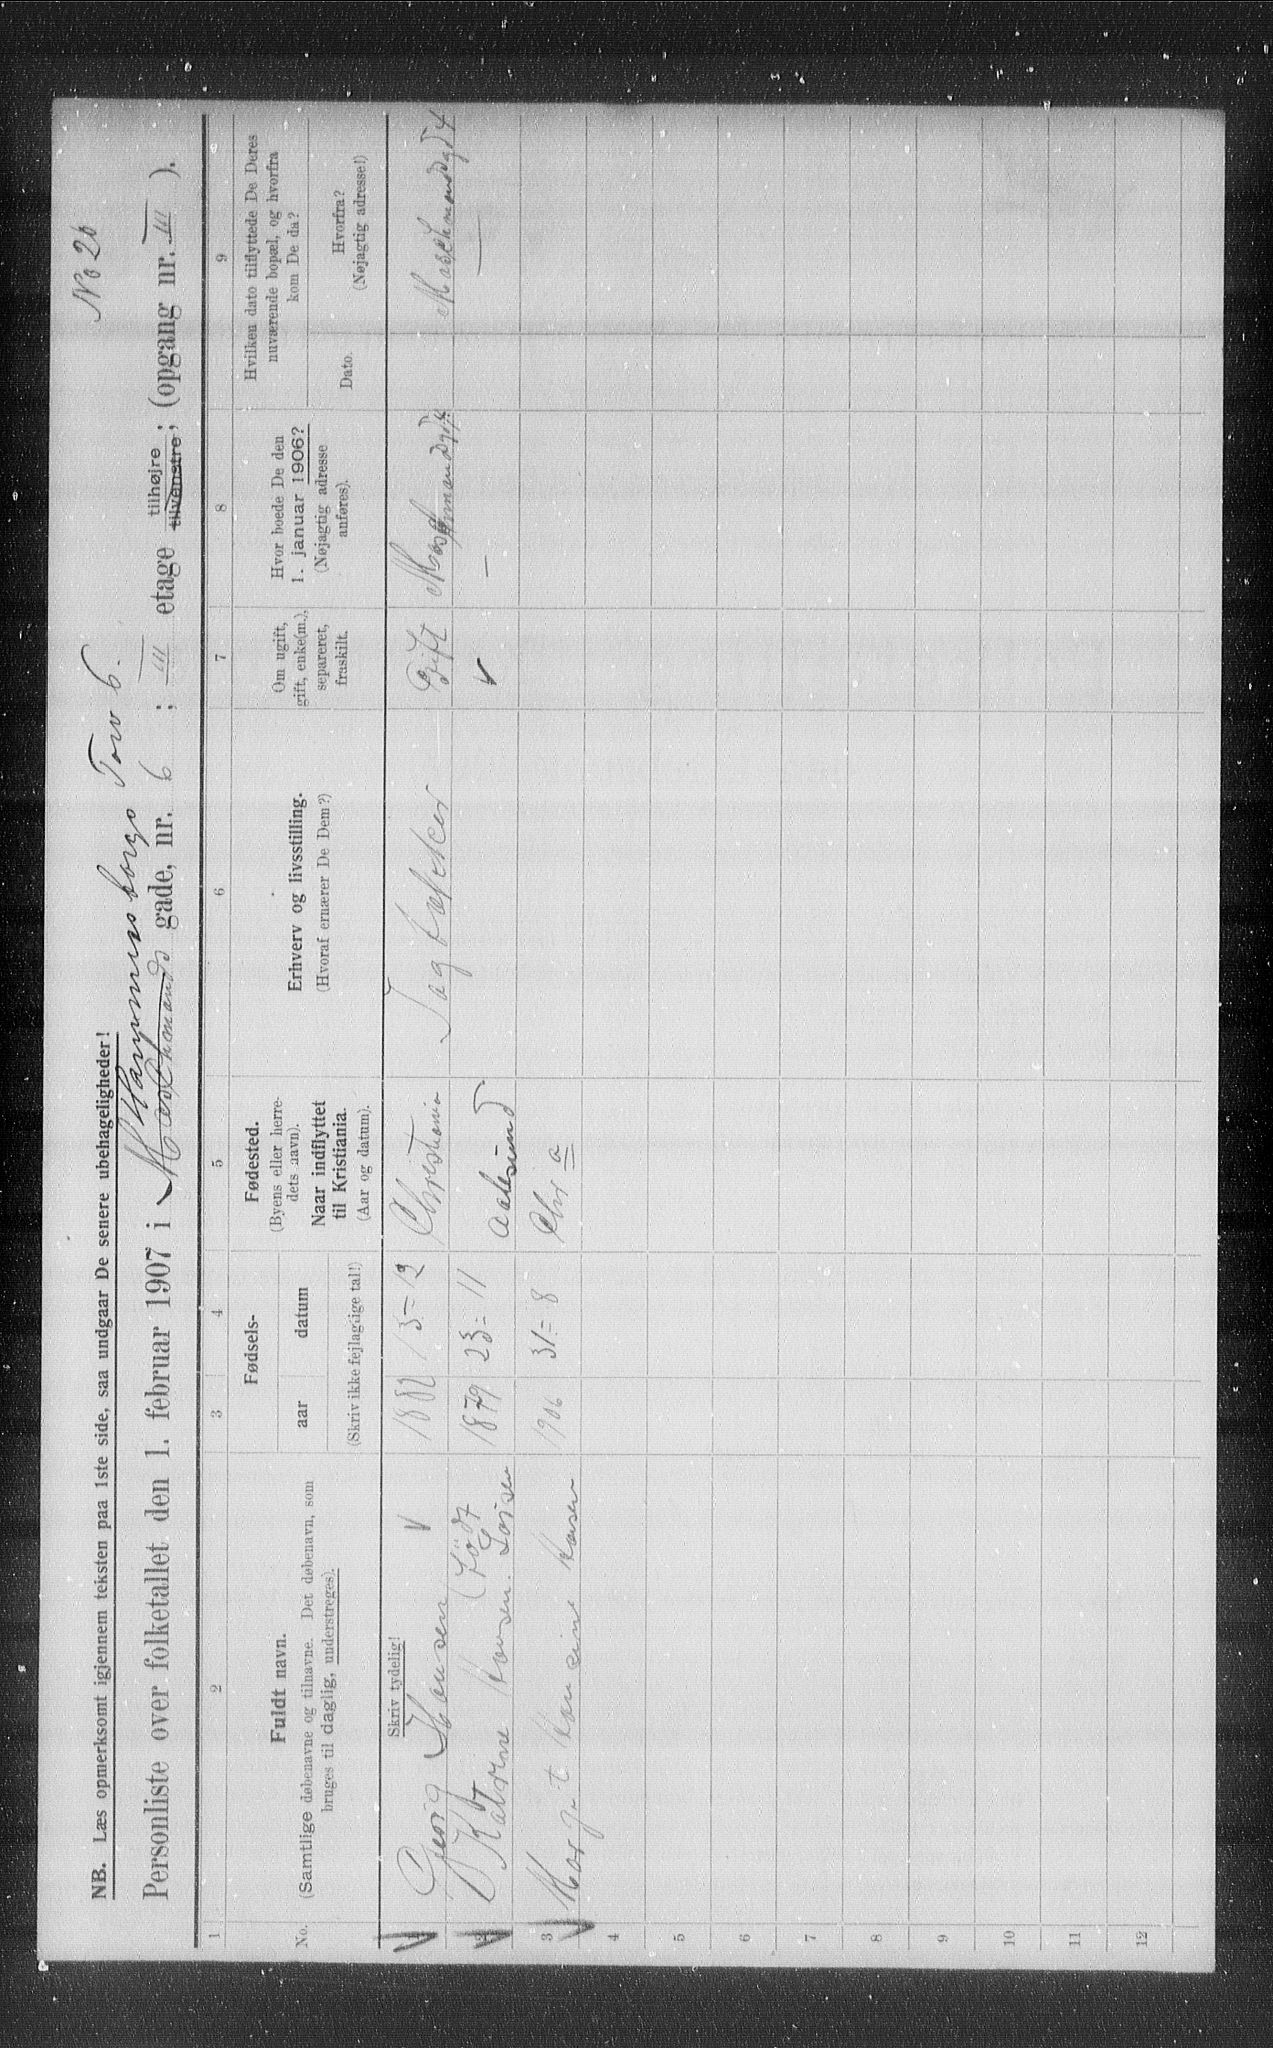 No 26
NB. Læs opmerksomt igjennem teksten paa 1ste side, saa undgaar De senere ubehageligheder!
Hammersborgs Torv 6.
Personliste over folketallet den 1. februar 1907 i Maschmands gade, nr. 6 ; III etage tilhøjre tilvenstre; (opgang nr. III ).
1 2 3 4 5 6 7 8 9
No.
Fuldt navn.
(Samtlige døbenavne og tilnavne. Det døbenavn, som
bruges til daglig, understreges).
Fødsels-
aar datum
(Skriv ikke fejlagtige tal!)
Fødested.
(Byens eller herre-
dets navn).
Naar indflyttet
til Kristiania.
(Aar og datum).
Erhverv og livsstilling.
(Hvoraf ernærer De Dem?)
Om ugift,
gift, enke(m.),
separeret,
fraskilt.
Hvor boede De den
1. januar 1906?
(Nøjagtig adresse
anføres).
Hvilken dato tilflyttede De Deres
nuværende bopæl, og hvorfra
kom De da?
Dato.
Hvorfra?
(Nøjagtig adresse!)
Skriv tydelig!
Georg Hansen 1882 13=12 Christiania Tagtækker Gift Maschmandsgd 4 Maschmandsgd 4
2 Katrine Hansen (født Larsen 1879 23=11 Aalesund —
3 Margit Hansine Hansen 1906 31=8 Chr a
4
5
6
7
8
9
10
11
12